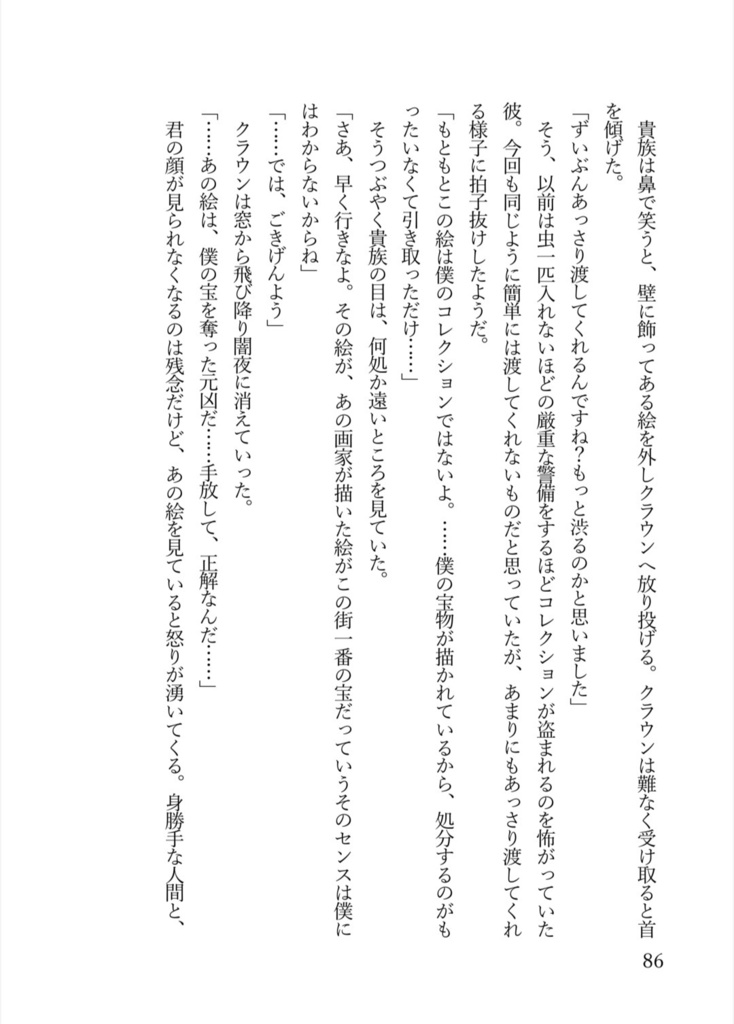 貴族は鼻で笑うと、壁に飾ってある絵を外しクラウンへ放り投げる。クラウンは難なく受け取ると首
を傾げた。
「ずいぶんあっさり渡してくれるんですね？もっと渋るのかと思いました」
　そう、以前は虫一匹入れないほどの厳重な警備をするほどコレクションが盗まれるのを怖がっていた
彼。今回も同じように簡単には渡してくれないものだと思っていたが、あまりにもあっさり渡してくれ
る様子に拍子抜けしたようだ。
「もともとこの絵は僕のコレクションではないよ。……僕の宝物が描かれているから、処分するのがも
ったいなくて引き取っただけ……」
　そうつぶやく貴族の目は、何処か遠いところを見ていた。
「さあ、早く行きなよ。その絵が、あの画家が描いた絵がこの街一番の宝だっていうそのセンスは僕に
はわからないからね」
「……では、ごきげんよう」
　クラウンは窓から飛び降り闇夜に消えていった。
「……あの絵は、僕の宝を奪った元凶だ……手放して、正解なんだ……」
　君の顔が見られなくなるのは残念だけど、あの絵を見ていると怒りが湧いてくる。身勝手な人間と、
86